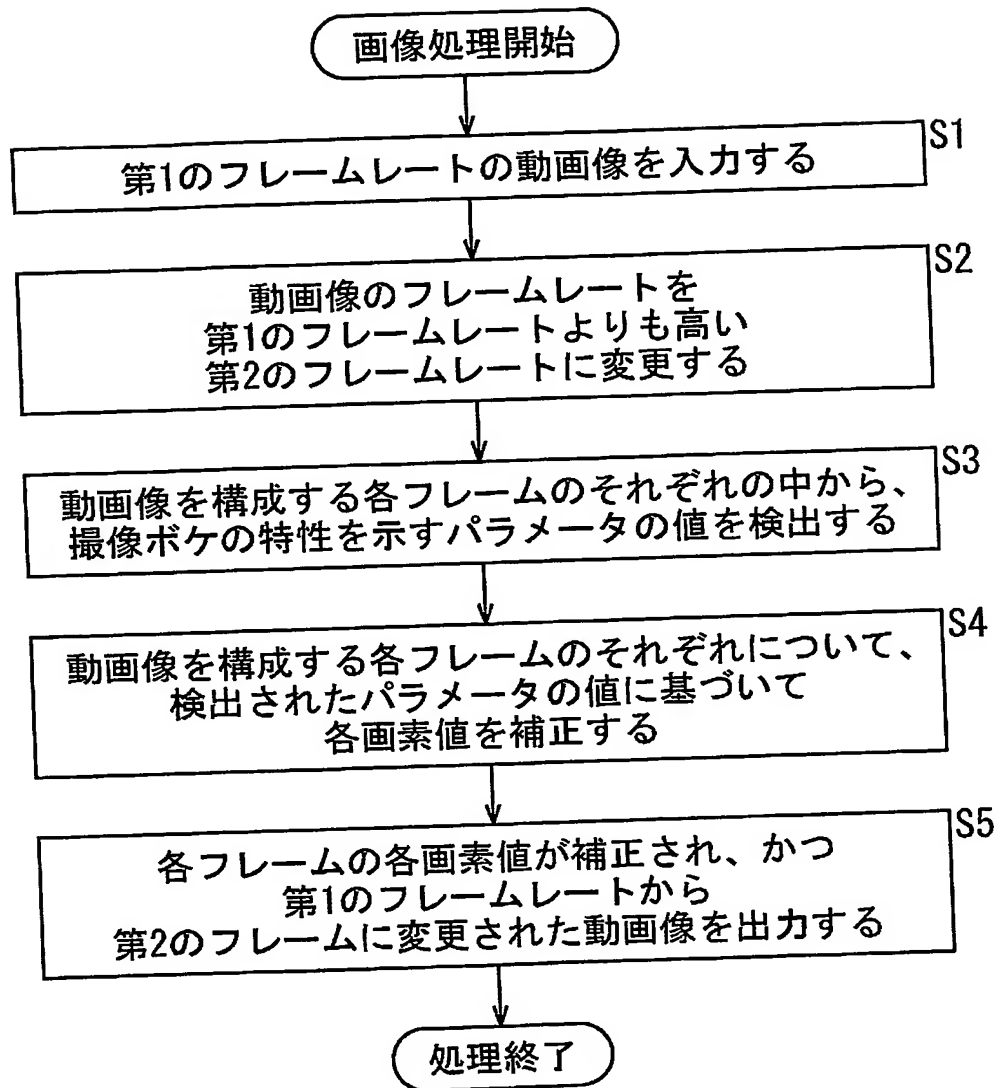 画像処理開始
S1
第1のフレームレートの動画像を入力する
S2
動画像のフレームレートを
第1のフレームレートよりも高い
第2のフレームレートに変更する
S3
動画像を構成する各フレームのそれぞれの中から、
撮像ボケの特性を示すパラメータの値を検出する
S4
動画像を構成する各フレームのそれぞれについて、
検出されたパラメータの値に基づいて
各画素値を補正する
S5
各フレームの各画素値が補正され、かつ
第1のフレームレートから
第2のフレームに変更された動画像を出力する
処理終了